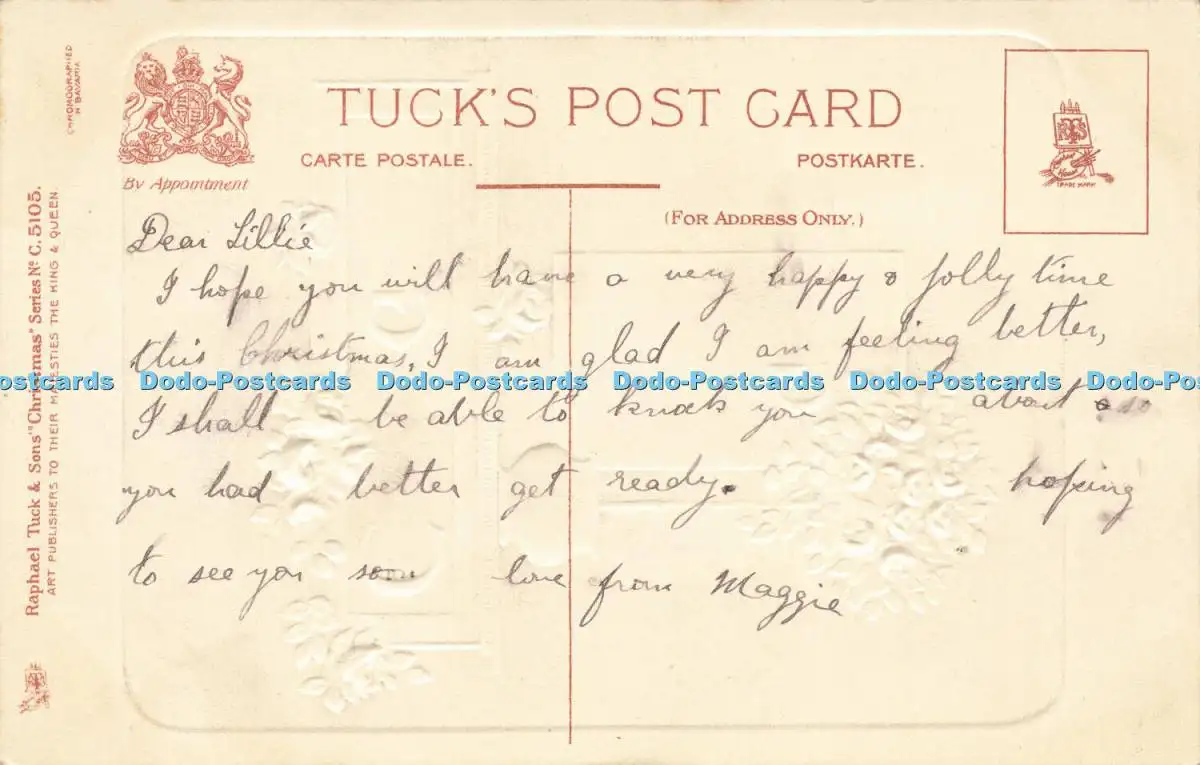 CHROMOGRAPHED
IN BAVARIA
Raphael Tuck & Sons' "Christmas" Series Nº C. 5105.
ART PUBLISHERS TO THEIR MAJESTIES THE KING & QUEEN.
By Appointment
TUCK'S POST CARD
CARTE POSTALE.
POSTKARTE.
(FOR ADDRESS ONLY.)
TRADE MARK
Dear Lillie
I hope you will have a very happy & jolly time
this Christmas, I am glad I am feeling better,
ostcards Dodo-Postcards Dodo-Postcards Dodo-Postcards Dodo-Postcards Dodo-Post
I shall be able to knock you about so
you had better get ready. hoping
to see you soon love from Maggie